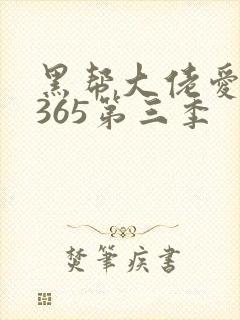 黑帮大佬爱
365第三季
焚笔疾书